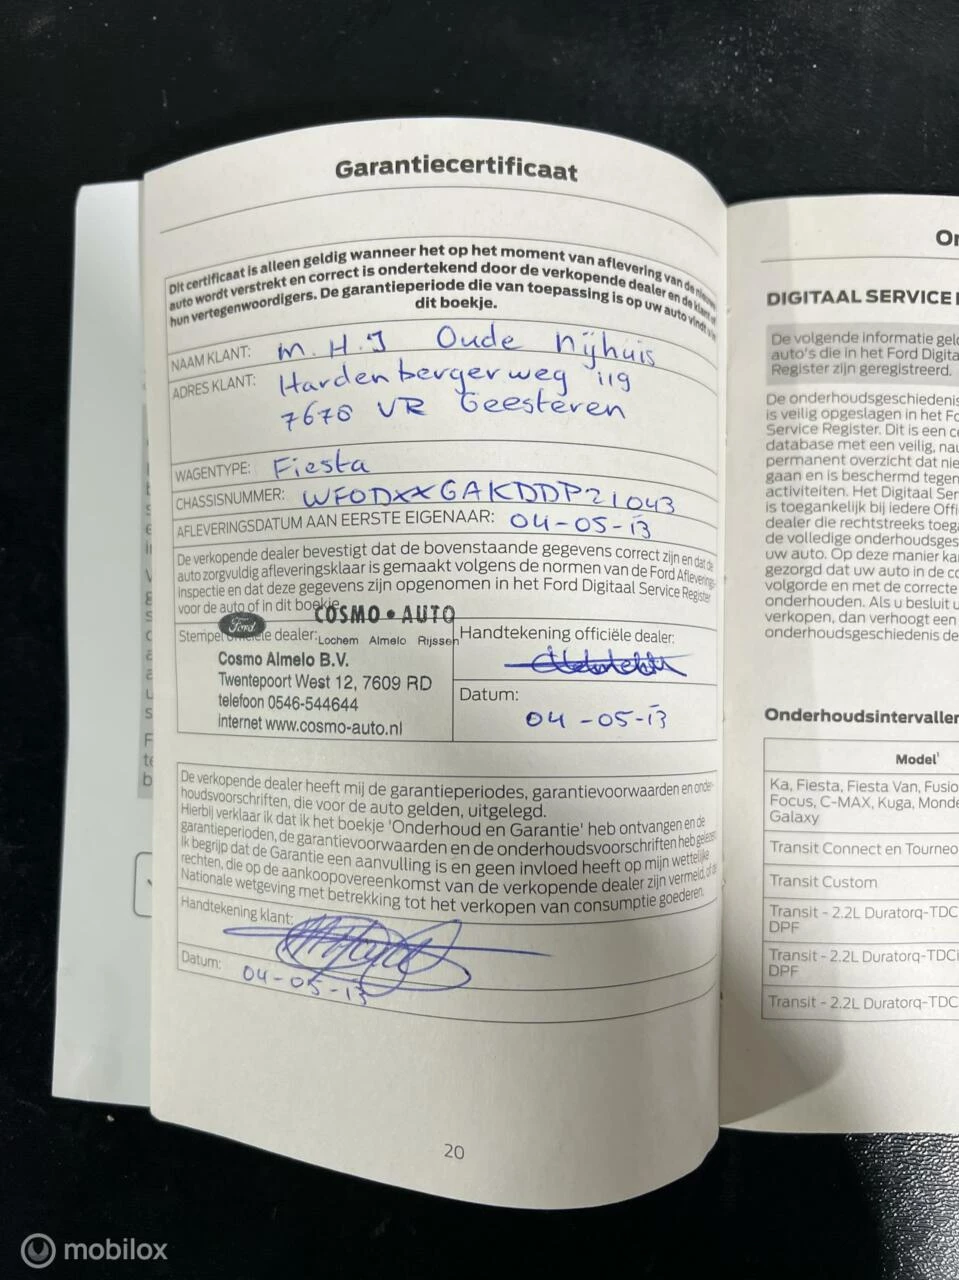 Garantiecertificaat
Dit certificaat is alleen geldig wanneer het op het moment van aflevering van de nieuwe
auto wordt verstrekt en correct is ondertekend door de verkopende dealer en de klant of
hun vertegenwoordigers. De garantieperiode die van toepassing is op uw auto vindt u in
dit boekje.
NAAM KLANT: M.H.J Oude Nijhuis
ADRES KLANT: Hardenbergerweg 119
7678 VR Geesteren
WAGENTYPE: Fiesta
CHASSISNUMMER: WF0DXXGAKDDP21043
AFLEVERINGSDATUM AAN EERSTE EIGENAAR: 04-05-13
De verkopende dealer bevestigt dat de bovenstaande gegevens correct zijn en dat de
auto zorgvuldig afleveringsklaar is gemaakt volgens de normen van de Ford Afleverings-
inspectie en dat deze gegevens zijn opgenomen in het Ford Digitaal Service Register
voor de auto of in dit boekje.
Ford COSMO • AUTO
Stempel officiële dealer: Lochem Almelo Rijssen
Cosmo Almelo B.V.
Twentepoort West 12, 7609 RD
telefoon 0546-544644
internet www.cosmo-auto.nl
Handtekening officiële dealer:
Datum:
04-05-13
De verkopende dealer heeft mij de garantieperiodes, garantievoorwaarden en onder-
houdsvoorschriften, die voor de auto gelden, uitgelegd.
Hierbij verklaar ik dat ik het boekje 'Onderhoud en Garantie' heb ontvangen en de
garantieperioden, de garantievoorwaarden en de onderhoudsvoorschriften heb gelezen.
Ik begrijp dat de Garantie een aanvulling is en geen invloed heeft op mijn wettelijke
rechten, die op de aankoopovereenkomst van de verkopende dealer zijn vermeld, of de
Nationale wetgeving met betrekking tot het verkopen van consumptie goederen.
Handtekening klant:
Datum: 04-05-13
20
DIGITAAL SERVICE
De volgende informatie
auto's die in het Ford
Register zijn geregistreerd.
De onderhoudsgeschiedenis
is veilig opgeslagen in het
Service Register. Dit is een
database met een veilig,
permanent overzicht dat
gaan en is beschermd tegen
activiteiten. Het Digitaal
is toegankelijk bij iedere
dealer die rechtstreeks
de volledige
uw auto. Op deze manier
gezorgd dat uw auto in de
volgorde en met de correcte
onderhouden. Als u besluit
verkopen, dan verhoogt een
onderhoudsgeschiedenis de
Model¹
Ka, Fiesta, Fiesta Van,
Focus, C-MAX, Kuga,
Galaxy
Transit Connect en
Transit Custom
Transit - 2.2L
DPF
Transit - 2.2L
DPF
Transit - 2.2L
mobilox